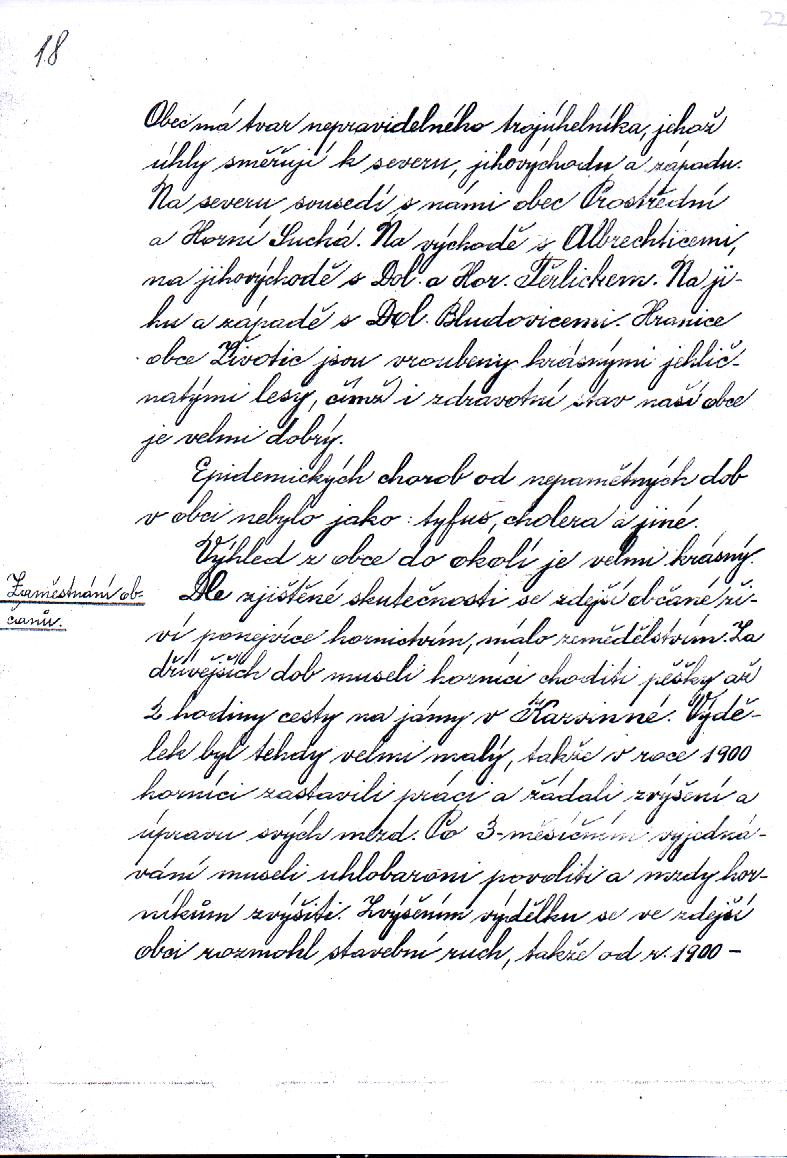 18
22
Obec má tvar nepravidelného trojúhelníka, jehož
úhly směřují k severu, jihovýchodu a západu.
Na severu sousedí s námi obec Prostřední
a Horní Suchá. Na východě s Albrechticemi,
na jihovýchodě s Dol. a Hor. Těrlickem. Na ji-
hu a západě s Dol. Bludovicemi. Hranice
obce Životic jsou vroubeny krásnými jehlič-
natými lesy, čímž i zdravotní stav naší obce
je velmi dobrý.
Epidemických chorob od nepamětných dob
v obci nebylo jako: tyfus, cholera a jiné.
Výhled z obce do okolí je velmi krásný.
Zaměstnání ob-
čanů.
Dle zjištěné skutečnosti se zdejší občané ži-
ví ponejvíce hornictvím, málo zemědělstvím. Za
dřívějších dob museli horníci choditi pěšky až
2 hodiny cesty na jámy v Karvinné. Výdě-
lek byl tehdy velmi malý, takže v roce 1900
horníci zastavili práci a žádali zvýšení a
úpravu svých mezd. Po 3-měsíčním vyjedná-
vání museli uhlobaroni povoliti a mzdy hor-
níkům zvýšiti. Zvýšením výdělku se ve zdejší
obci rozmohl stavební ruch, takže od r. 1900-